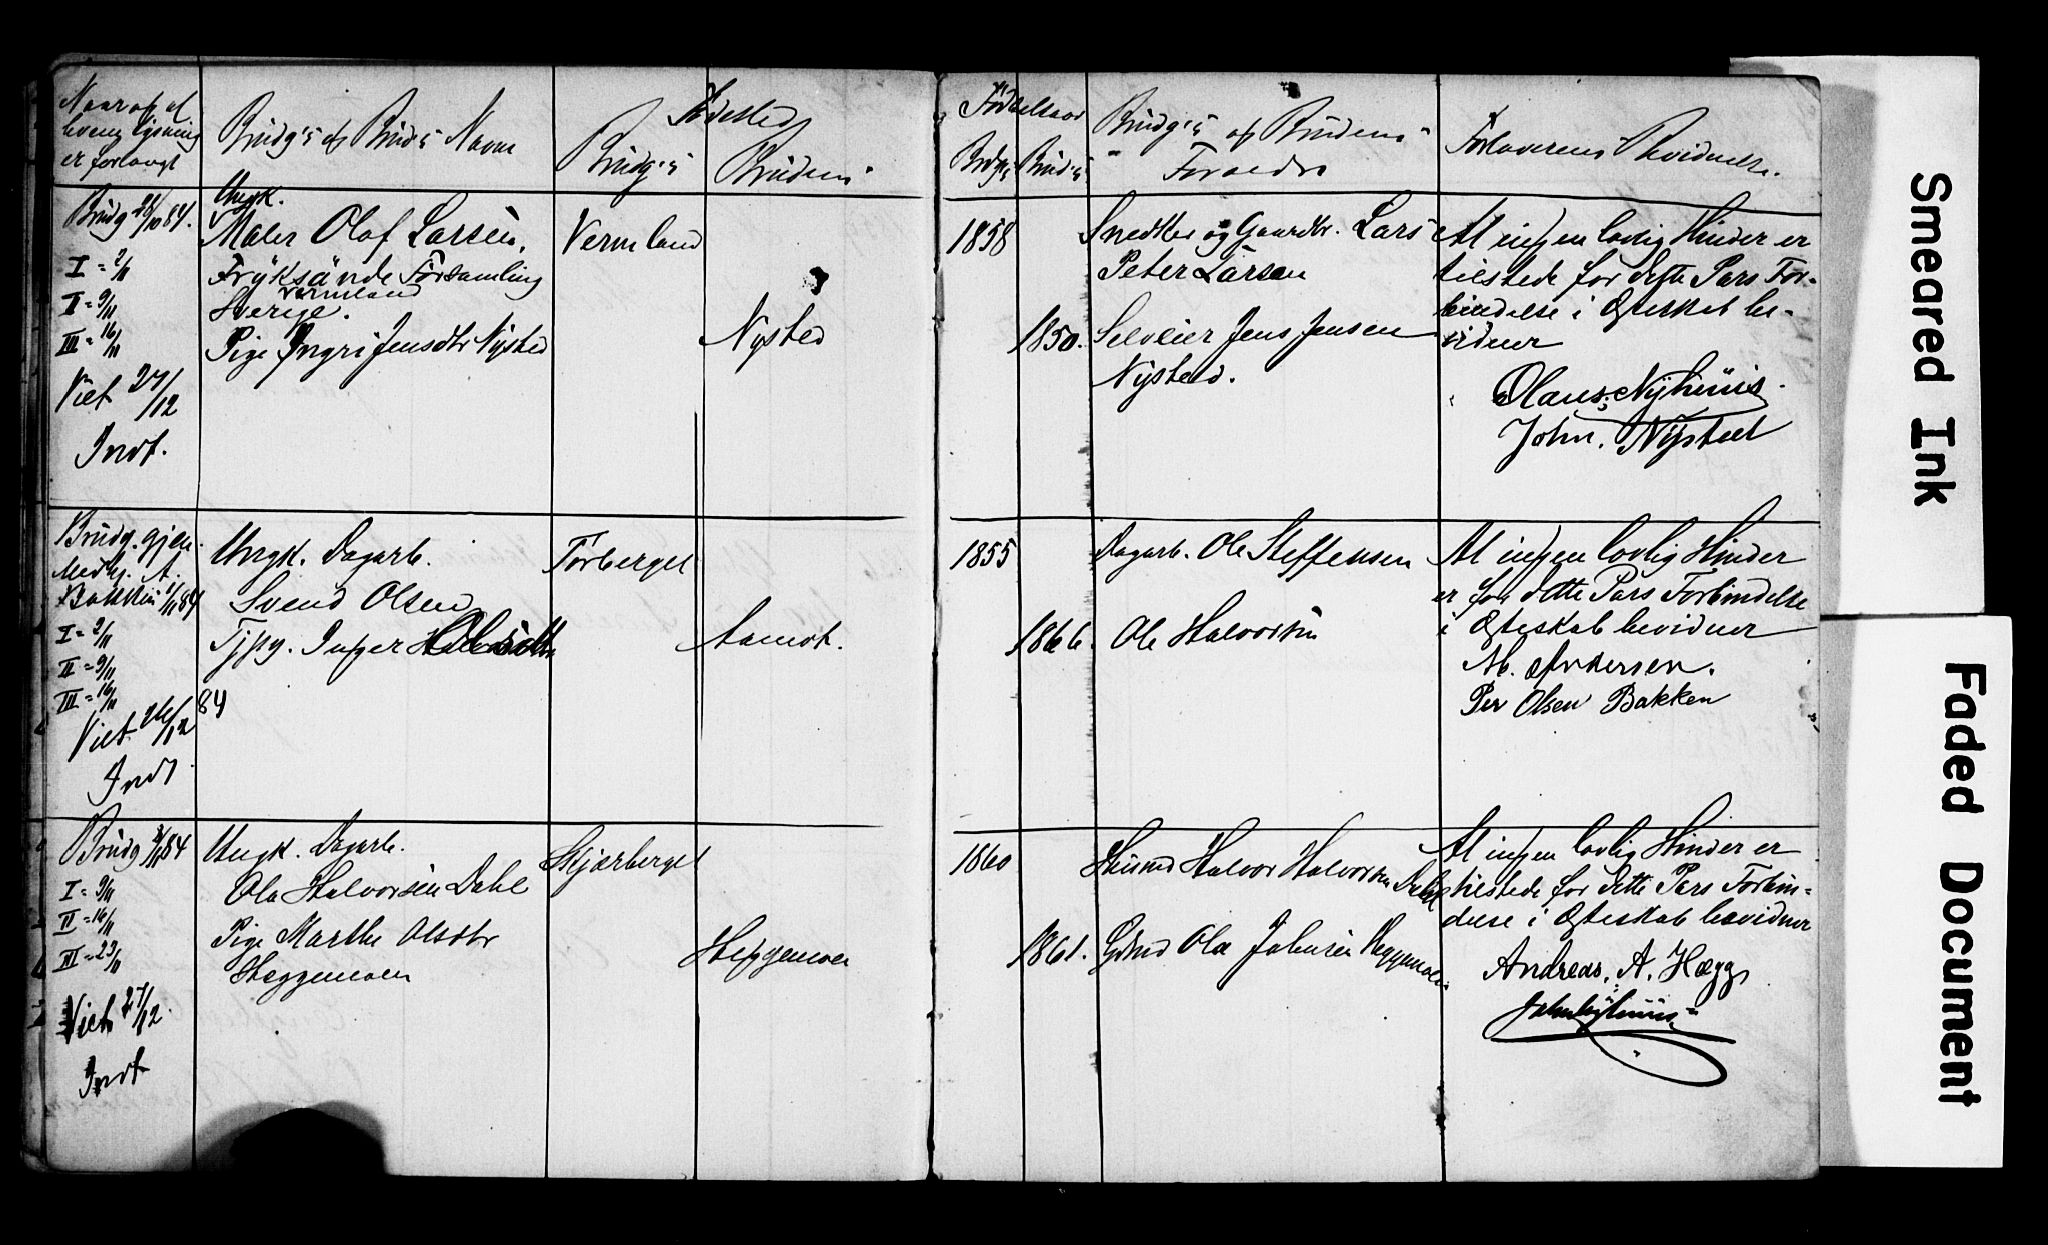 Naar og af
hvem lysning
er forlangt
Brudg's og Bruds Navne
Fødested
Brudg's
Brudens
Fødselsaar
Brdgs
Brud's
Brudg's og Brudens
Foraedre
Forloverens Bevidnelse.
Brudg /10 84.
I = 2/11
II = 9/11
III = 16/11
Viet 27/12
Indf.
Ungk.
Maler Olof Larsen,
Fryksände Forsamling
Vermland
Sverige.
Pige Yngri Jensdtr Nysted
Vermland
Nysted
1858
1850.
Snedker og Gaardbr. Lars
Peter Larsen
Selveier Jens Jensen
Nysted.
At ingen lovlig Hinder er
tilstede for dette Pars For-
bindelse i Ægteskab be-
vidner
Olaus Nyhuus.
John. Nysted
Brudg. gjen.
Medhj. A.
Bakken 1/11 84
I = 2/11
II = 9/11
III = 16/11
Viet 26/12 84
Indf
Ungk. Dagarb.
Svend Olsen
Tjpg. Inger
Torberget
Aamot.
1855
1866.
Dagarb. Ole Steffensen
Ole Halvorsen
At ingen lovlig Hinder
er for dette Pars Forbindelse
i Ægteskab bevidner
M. Andersen.
Per Olsen Bakken
Brudg 3/11 84
I = 9/11
II = 16/11
III = 23/11
Viet 27/12.
Indf
Ungk. Dagarb.
Ola Halvorsen Dahl
Pige Marthe Olsdtr
Heggemoen
Kjærberget
Heggemoen
1860
1861.
Husmd Halvor Halvorsen Dahl
Gdmd Ola Johnsen Heggemoen
At ingen lovlig Hinder er
tilstede for dette Pars Forbin-
delse i Ægteskab bevidner
Andreas. A. Hægg
John Nyhuus
Smeared Ink
Faded Document